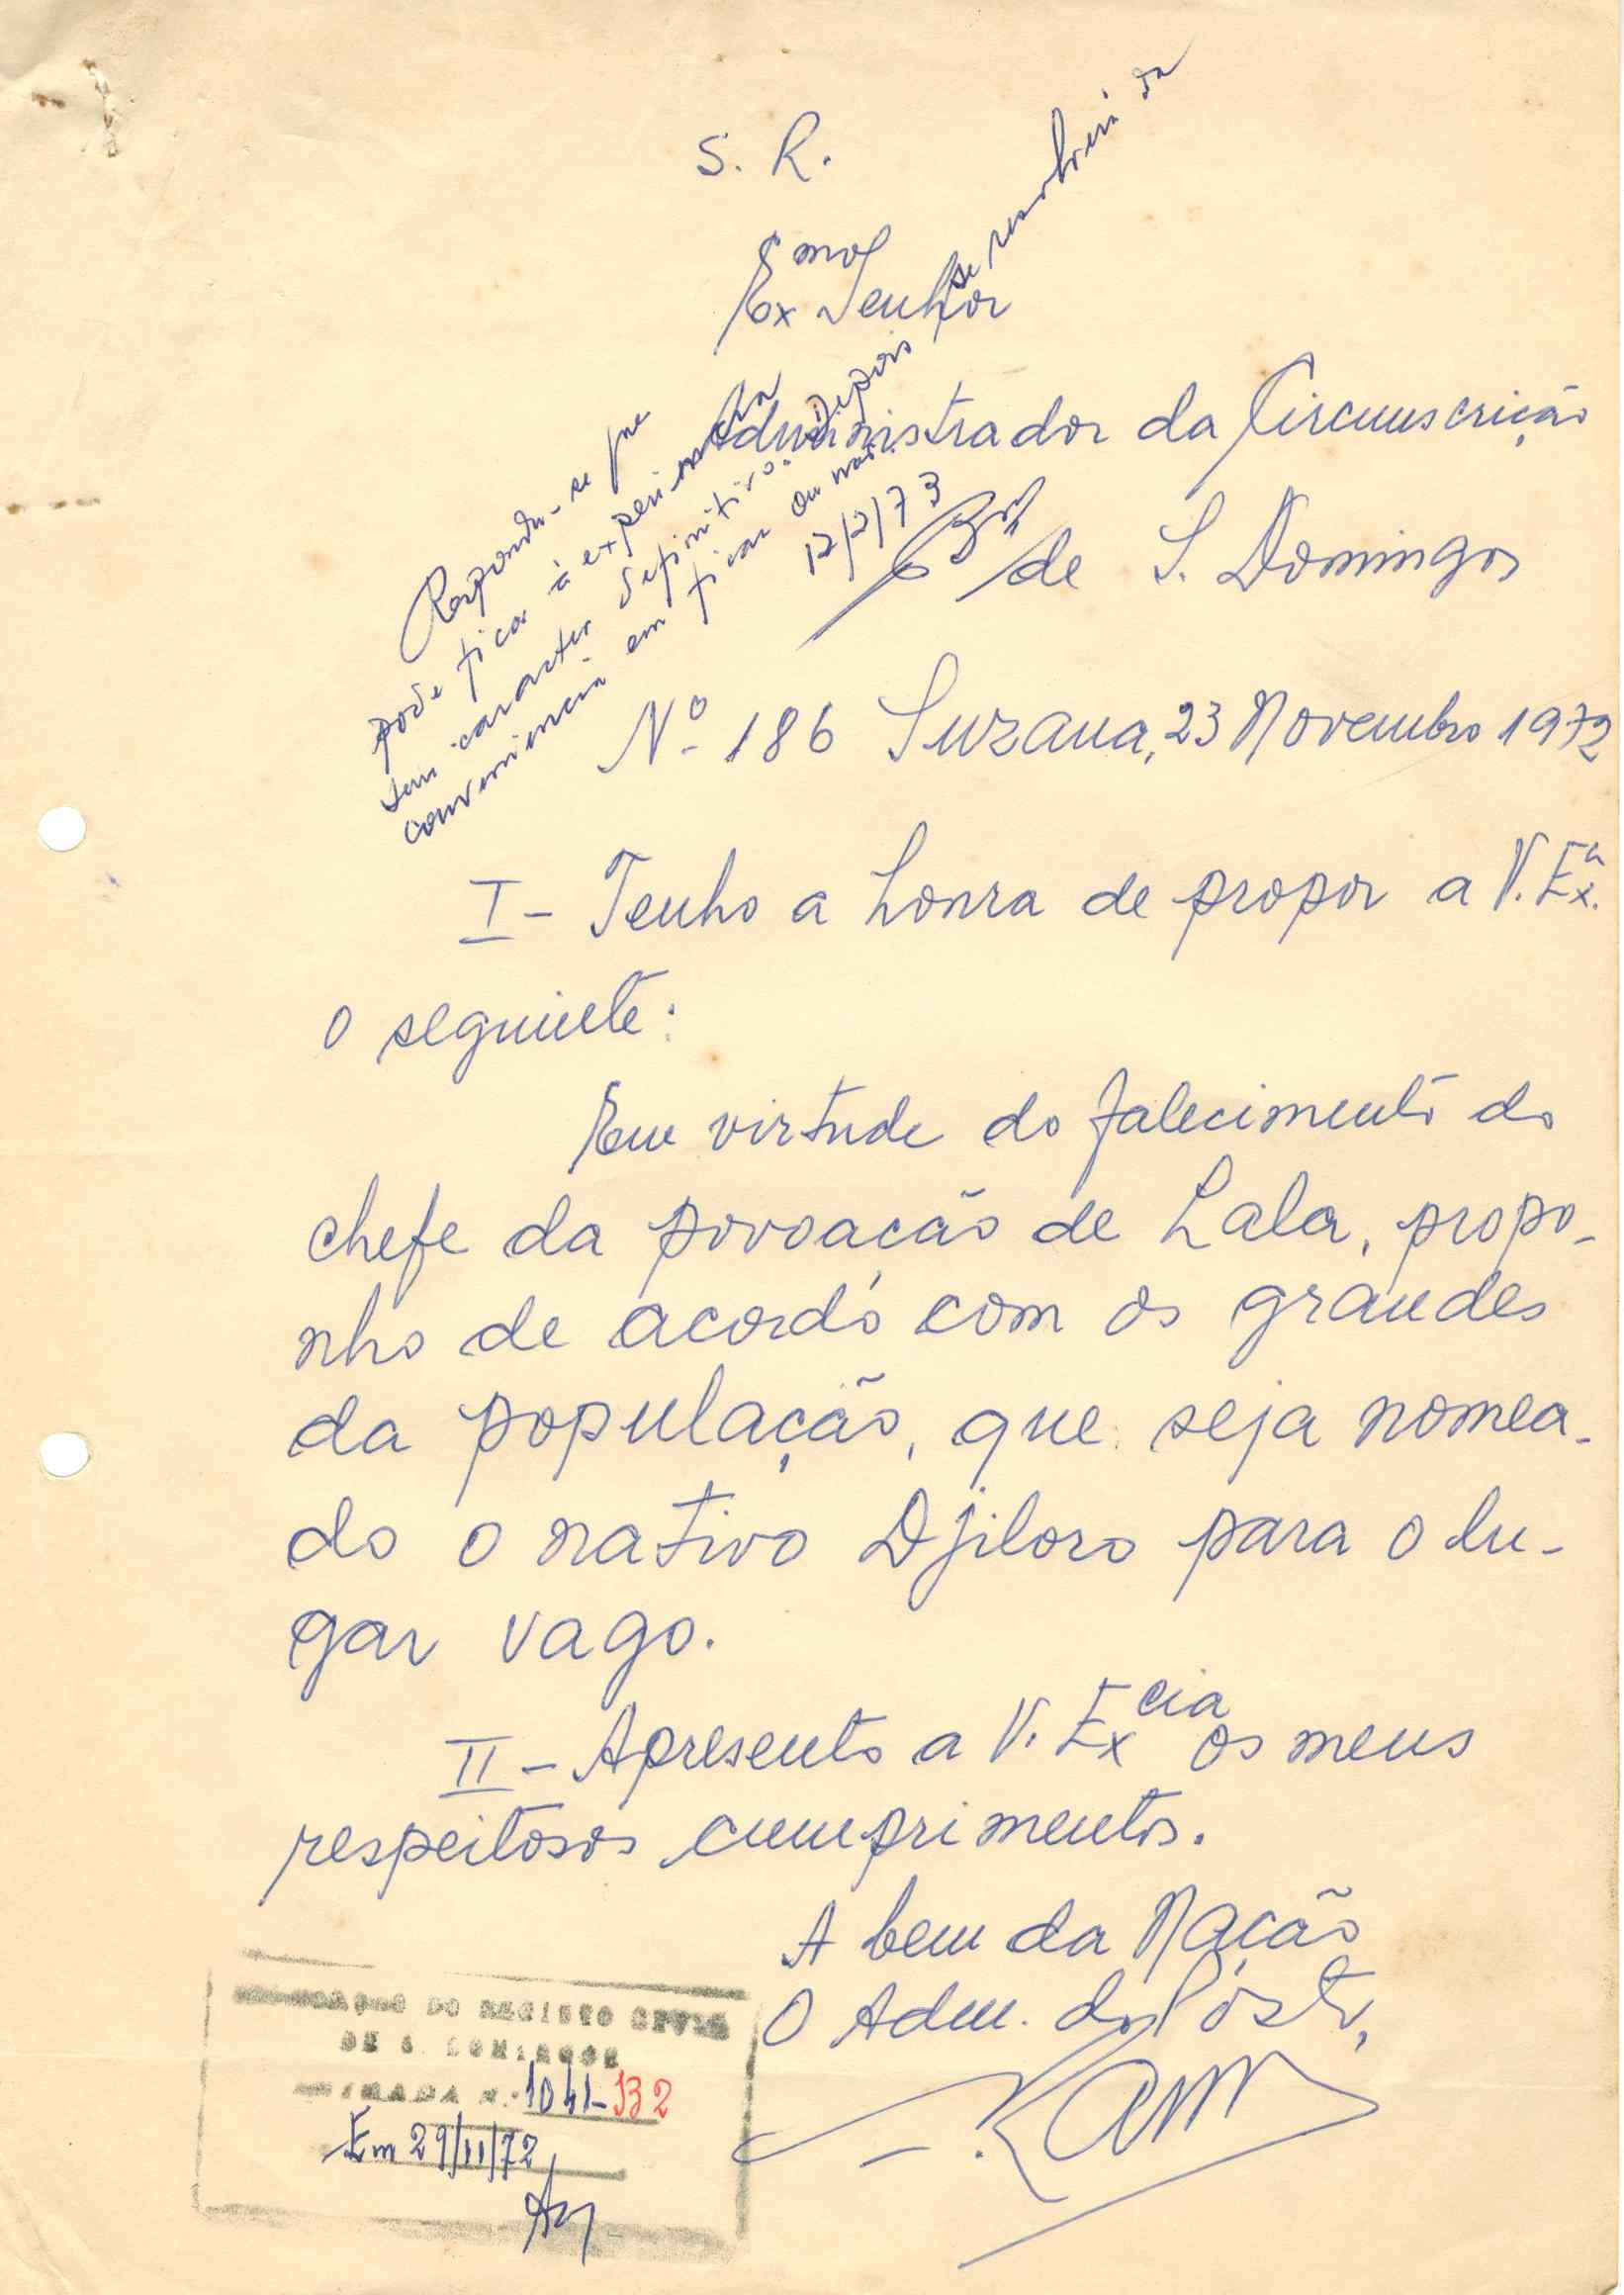 S. R.
Exmo Senhor
Administrador da Circunscrição
de S. Domingos
Responda-se que
pode ficar à experiencia
sem caracter definitivo. Depois se resolverá da
conveniencia em ficar ou não.
12/2/73
Nº 186 Suzana, 23 Novembro 1972
I - Tenho a honra de propor a V. Exª.
o seguinte:
Em virtude do falecimento do
chefe da povoação de Lala, propo-
nho de acordo com os grandes
da população, que seja nomea-
do o nativo Djiloro para o lu-
gar vago.
II - Apresento a V. Excia os meus
respeitosos cumprimentos.
A bem da Nação
O Adm. do Pôsto,
DO REGISTO CIVIL
DE S. DOMINGOS
ENTRADA N.º 1041-132
Em 29/11/72